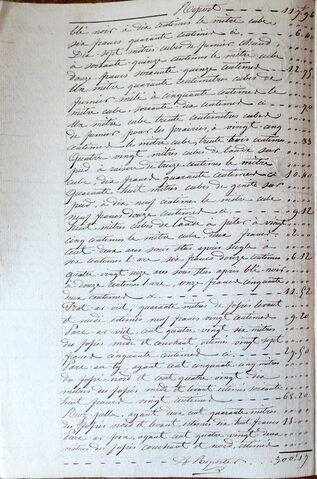 Report ---- 117.96
blé noir à dix centimes le mètre cube
six francs quarante centimes ci ---- 6.40
Dix sept mètres cubes de fumier chaud
à soixante quinze centimes le mètre cube
douze francs soixante quinze centimes ---- 12.75
Un mètre quarante centimètres cubes de
fumier mêlé à cinquante centimes le
mètre cube, soixante dix centimes ci ---- .70
Un mètre cube trente centimètres cubes
de fumier pour les prairies, à vingt cinq
centimes le mètre cube, trente trois centimes ---- .33
Quatre vingt mètres cubes de lande sur
pied à raison de treize centimes le mètre
cube, dix francs quarante centimes ci ---- 10.40
Quarante huit mètres cubes de genêt sur
pied, à dix neuf centimes le mètre cube
neuf francs douze centimes ci ---- 9.12
huit mètres cubes de lande à piler à vingt
cinq centimes le mètre cube deux francs ---- 2.
Cent deux ares sous étas après seigle à
six centimes l'are, six francs douze centimes ---- 6.12
quatre vingt seize ares sous étas après blé noir
à douze centimes l'are, onze francs cinquante
deux centimes ci ---- 11.52
Prat ar viel, quarante mètres de fossés levant
et midi estimés neuf francs vingt centimes ---- 9.20
Parc ar viel cent quatre vingt six mètres
de fossés midi et couchant estimés vingt sept
francs cinquante centimes ci ---- 27.50
Parc an ty, ayant cent cinquante cinq mètres
de fossés nord et cent quatre vingt dix
mètres de fossés midi et levant estimés soixante
huit francs vingt centimes ---- 68.20
ayant deux cent quarante mètres
de fossés nord et levant estimés dix huit francs ---- 18.
Parc ar feax, ayant cent quatre vingt deux
mètres de fossés couchant et nord, estimés
À Reporter ---- 300.17